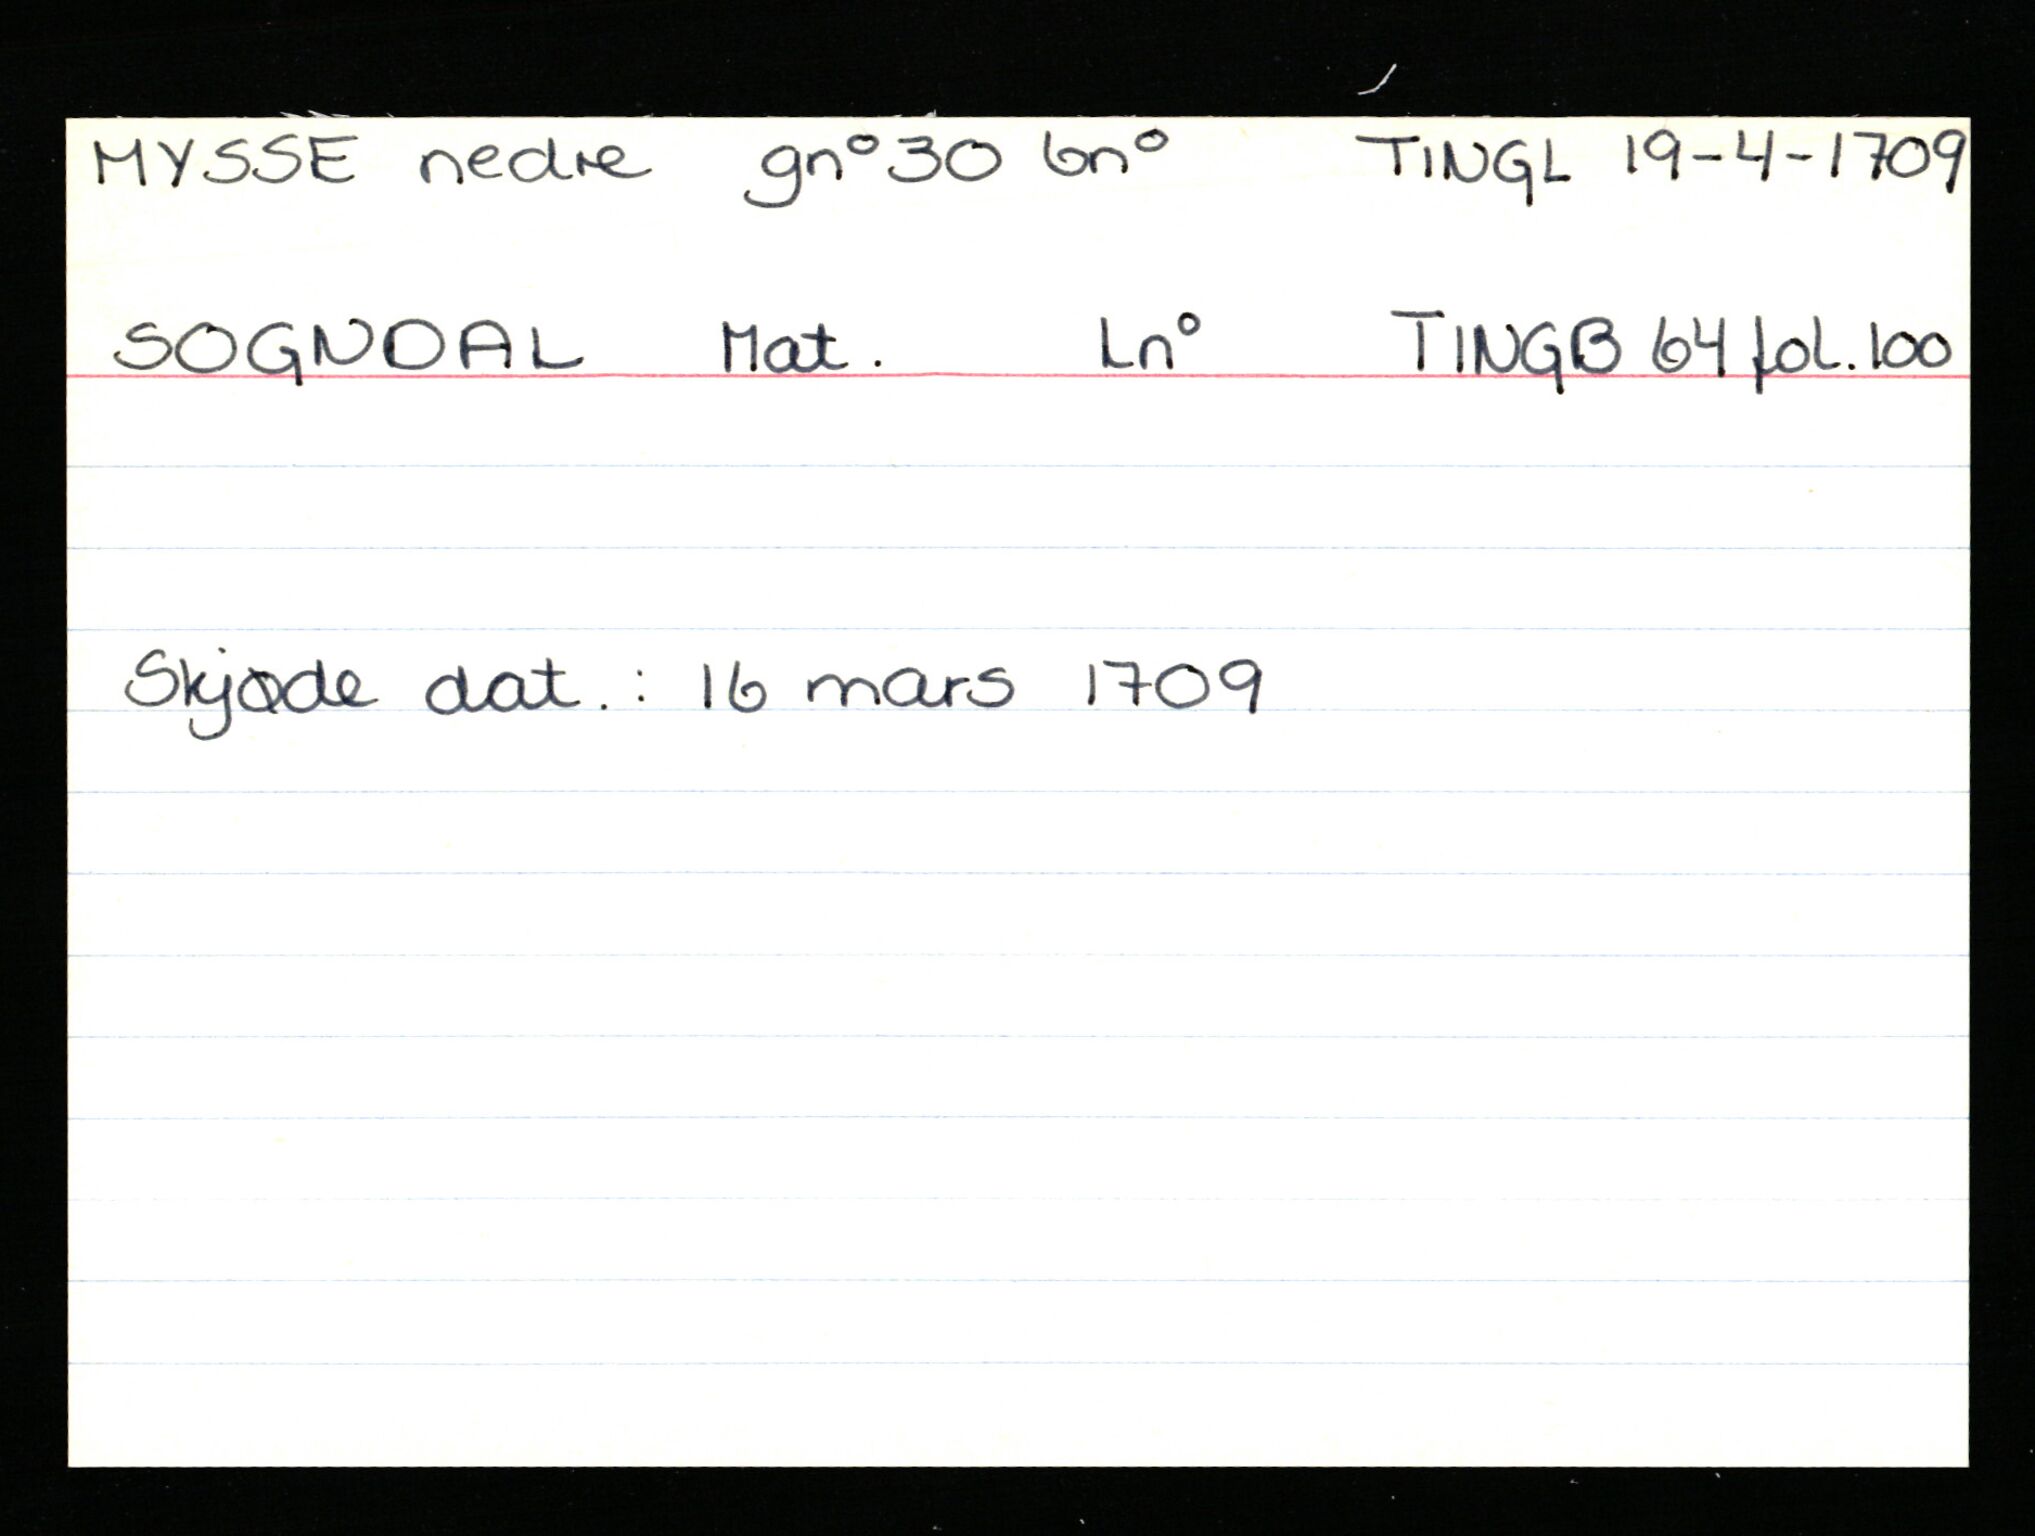 MYSSE nedre gn° 30 bn° TINGL 19-4-1709
SOGNDAL Mat. Ln° TINGB 64 fol. 100
Skjøde dat.: 16 mars 1709